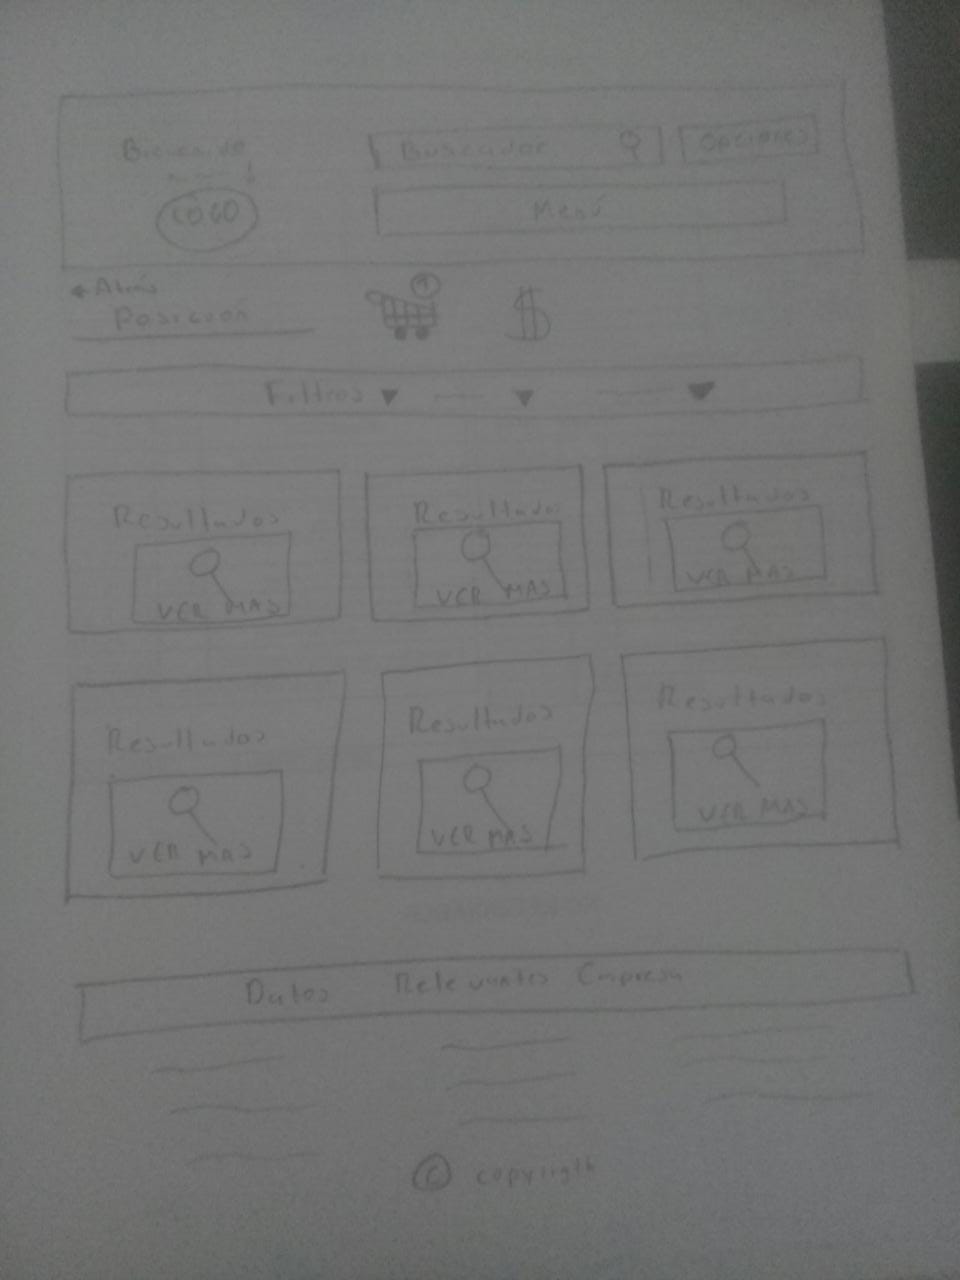 Bienvenido
Buscador
Opciones
LOGO
Menú
Atrás
Posición
$
Filtros
Resultados
VER MAS
Resultados
VER MAS
Resultados
VER MAS
Resultados
VER MAS
Resultados
VER MAS
Resultados
VER MAS
Datos Relevantes Empresa
© copyrigth